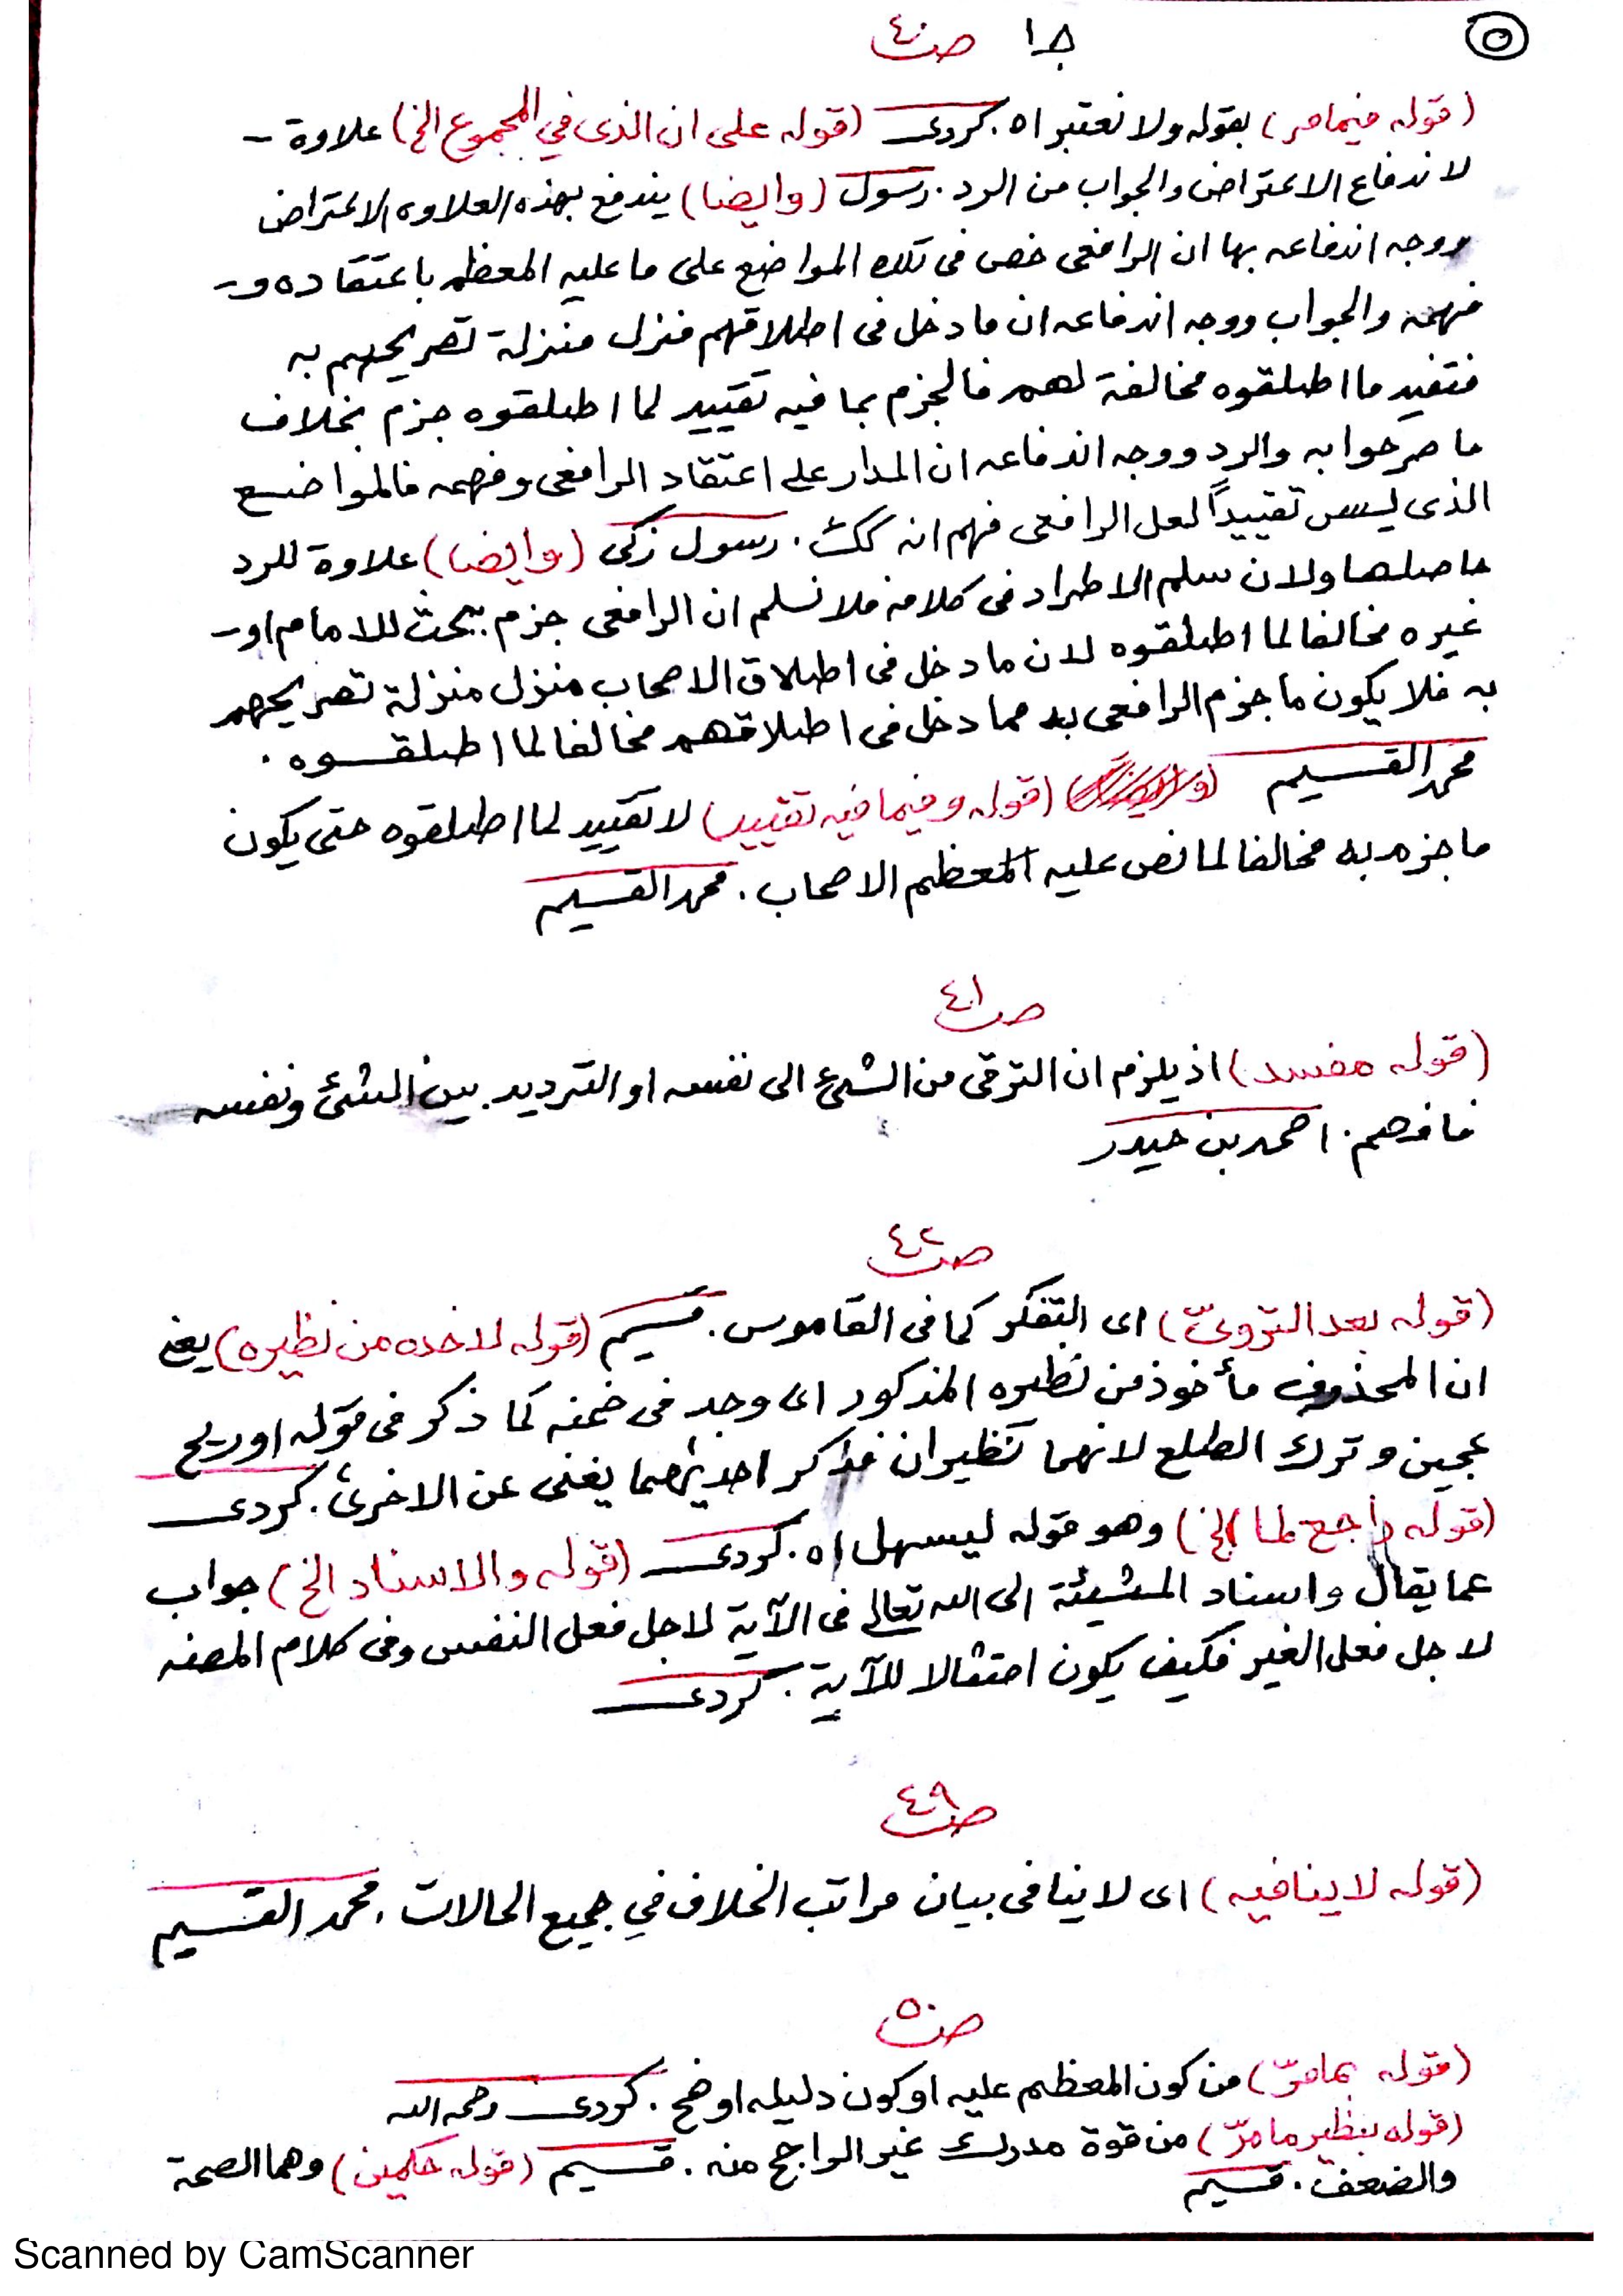 ٥
جـ١ صـ٤٠
(قوله فيما مر) بقوله ولا نعتبر اه. كردى (قوله على ان الذى في المجموع الخ) علاوة -
لاندفاع الاعتراض والجواب من الرد. رسول (وايضا) يندفع بهذه العلاوه الاعتراض
ووجه اندفاعه بها ان الرافعى خص فى تلك المواضع على ما عليه المعظم باعتقاده و-
فهمه والجواب ووجه اندفاعه ان ما دخل فى اطلاقهم منزل منزلة تصريحهم به
فتقييد ما اطلقوه مخالفة لهم فالجزم بما فيه تقييد لما اطلقوه جزم بخلاف
ما صرحوا به والرد ووجه اندفاعه ان المدار على اعتقاد الرافعى وفهمه فالمواضع
الذى ليس تقييداً لعل الرافعى فهم انه كك. رسول زكى (وايضا) علاوة للرد
حاصلها ولان سلم الاطراد فى كلامه فلا نسلم ان الرافعى جزم ببحث للامام او-
غيره مخالفا لما اطلقوه لان ما دخل فى اطلاق الاصحاب منزل منزلة تصريحهم
به فلا يكون ما جزم الرافعى به مما دخل فى اطلاقهم مخالفا لما اطلقوه.
محمد القسيم (قوله وفيما فيه تقييد) لا تقييد لما اطلقوه حتى يكون
ما جزم به مخالفا لما نص عليه المعظم الاصحاب. محمد القسيم
صـ٤١
(قوله مفسد) اذ يلزم ان الترقى من الشىء الى نفسه او الترديد بين الشئ ونفسه
فافهم. احمد بن حيدر
صـ٤٢
(قوله بعد التروىّ) اى التفكر كما فى القاموس. قسيم (قوله لاخذه من نظيره) يعنى
ان المحذوف مأخوذ من نظيره المذكور اى وجد فى ضمنه كما ذكر فى قوله او ريح
عجين وترك الطلع لانهما نظيران فذكر احديهما يغنى عن الاخرىٰ. كردى
(قوله راجع لما الخ) وهو قوله ليسهل اه. كردى (قوله والاسناد الخ) جواب
عما يقال واسناد المشيئة الى الله تعالى فى الآية لاجل فعل النفس وفى كلام المصنف
لاجل فعل الغير فكيف يكون امتثالا للآية. كردى
صـ٤٩
(قوله لا ينافيه) اى لا ينافى بيان مراتب الخلاف في جميع الحالات. محمد القسيم
صـ٥٠
(قوله بما مرّ) من كون المعظم عليه او كون دليله اوضح. كردى رحمه الله
(قوله بنظير ما مرّ) من قوة مدرك غير الراجح منه. قسيم (قوله حكمين) وهما الصحة
والضعف. قسيم
Scanned by CamScanner